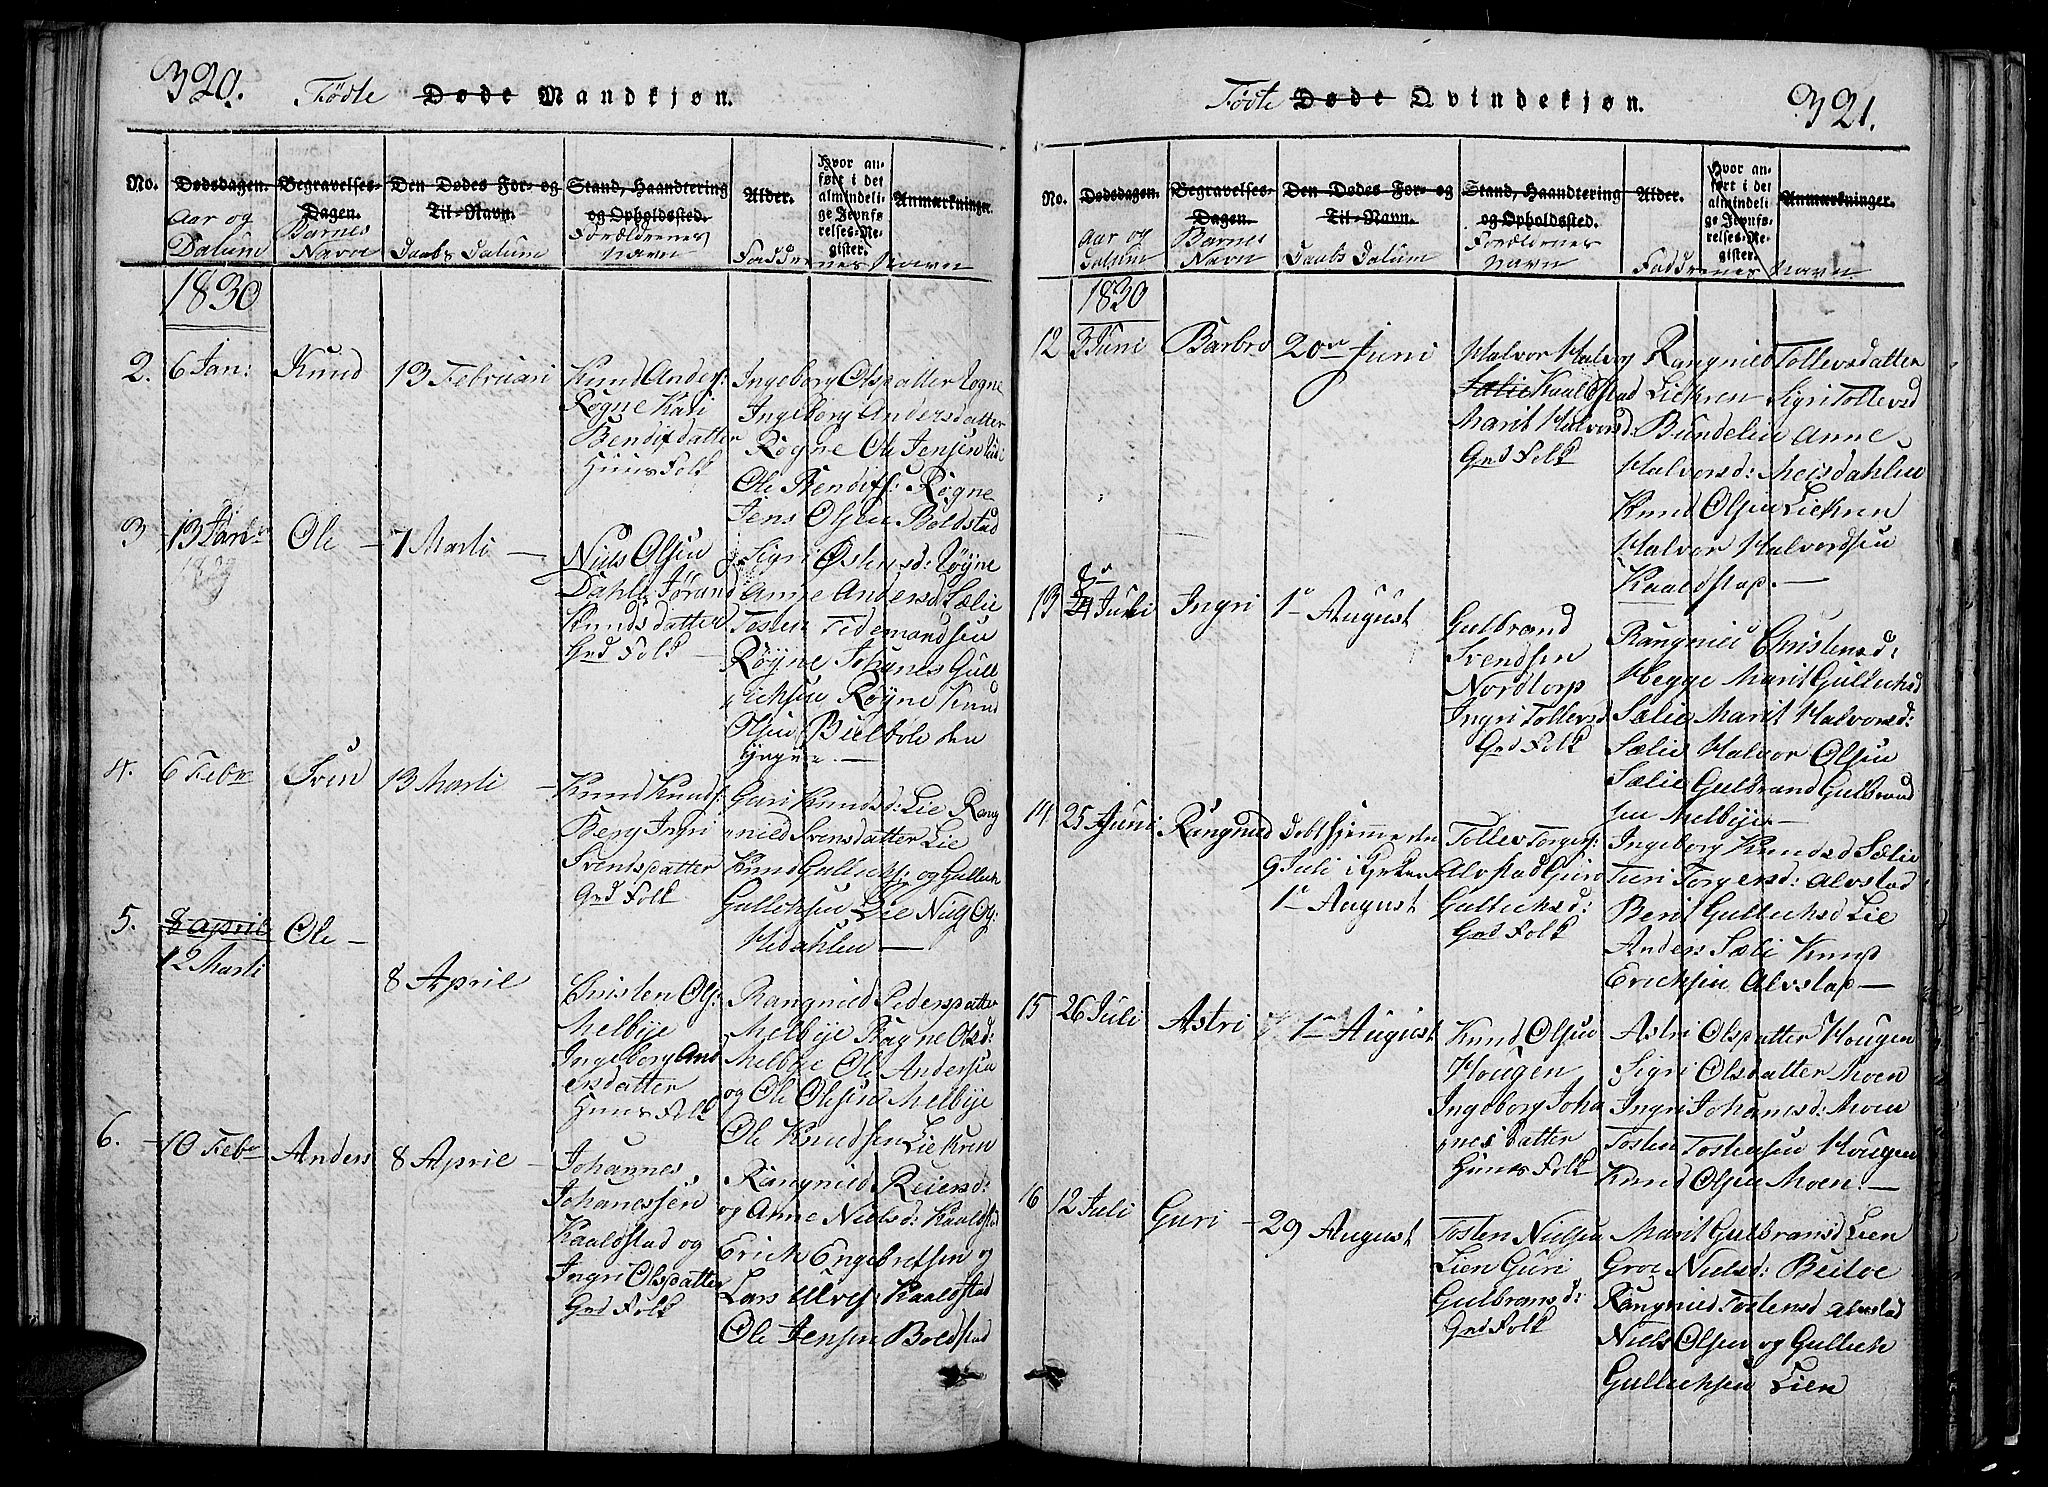 320.
Fødte Døde Mandkjøn.
No.
Dødsdagen.
Aar og
Datum
Begravelses-
Dagen.
Barnes
Navn
Den Dødes For- og
Til-Navn.
Daabs Datum
Stand, Haandtering
og Opholdssted.
Forældrenes
Navn
Alder.
Hvor an-
ført i det
almindeli-
ge Jevnfø-
relses-Re-
gister.
Anmærkninger.
Faddernes Navn
1830
2. 6 Jan: Knud 13 Februari
Knud Anders:
Røgne Kari
Bendixdatter
Huus Folk
Ingeborg Olsdatter Røgne
Ingeborg Andersdatter
Røgne Ole Jensen
Ole Bendix: Røgne
Jens Olsen Boldstad
3 13 Janr Ole – 7 Marti –
1829
Niels Olsen
Dahle Jørand
Knudsdatter
Grd Folk –
Sigri Østensd: Røyne
Anne Andersd Sælie
Tosten Tidemandsen
Røyne Johanes Gull
icksen Røyne Knud
Olsen Bielbøle den
yngre. –
4. 6 Febr Sven 13 Marti –
Knud Knuds:
Berg Ingri
Svensdatter
Grd Folk
Guri Knudsd: Lie Rang
nied Svensdatter Lie
Knud Gulliks: og Gullick
Gulliksen Lie
Hedahlen –
5. 8 april Ole –
12 Marti
8 April
Christen Ols:
Melbye
Ingeborg And
ersdatter
Huus Folk
Rangnied Pedersdatter
Melbye Ragne Olsd:
Melbye Ole Andersen
og Ole Olsen Melbye
Ole Knudsen Liekren
6. – 10 Febr Anders 8 April –
Johannes
Johanessen
Kaaldstad og
Ingri Olsdatter
Grd Folk
Rangnied Reiersd:
og Anne Nielsd: Kaaldstad
Erick Engebretsen og
Lars Ulves: Kaaldstad
Ole Jensen Boldstad
321.
Fødte Døde Qvindekjøn.
No.
Dødsdagen.
Aar og
Datum
Begravelses-
Dagen.
Barnes
Navn
Den Dødes For- og
Til-Navn.
Daabs Datum
Stand, Haandtering
og Opholdssted.
Forældrenes
Navn
Alder.
Hvor an-
ført i det
almindeli-
ge Jevnfø-
relses-Re-
gister.
Anmærkninger.
Faddernes Navn
1830
12 3 Juni Barbro 20de Juni
Halvor Halvors
Sælie Kaaldstad
Marit Halvorsd:
Grd Folk
Rangnied Tollevsdatter
Liekren Sigri Tollevsd
Bundelie Anne
Halvorsd: Meisdahlen
Knud Olsen Liekren
Halvor Halvordsen
Kaaldstad. –
13 Juli Ingri 1te August
Gulbrand
Svendsen
Nordtorp
Ingri Tollevsd
Grd Folk
Rangnied Christensd:
Hegge Marit Gullicksd
Sælie Marit Halvorsd:
Sælie Halvor Olsen
Sælie Gulbrand Gulbrand
sen Melbye –
14 25 Juni Rangnied
Døbt hjemme den
9 Juli i Kirken
1te August
Tollev Torgers:
Alvstad Guri
Gullicksd:
Grd Folk
Ingeborg Knudsd Sælie
Turi Torgersd: Alvstad
Berit Gullicksd Lie
Anders Sæli Knud
Ericksen Alvstad –
15 26 Juli Astri 1te August
Knud Olsen
Hougen
Ingeborg Joha
nesdatter
Huus Folk
Astri Olsdatter Hougen
Sigri Olsdatter Moen
Ingri Johanesd: Moen
Tosten Tostensen Hougen
Knud Olsen Moen –
16 12 Juli Guri – 29 August
Tosten Nielsen
Lien Guri
Gulbransd:
Grd Folk
Marit Gulbransd Lien
Groe Nielsd: Beitoe
Rangnied Tostensd Alvstad
Niels Olsen og Gullick
Gullicksen Lien